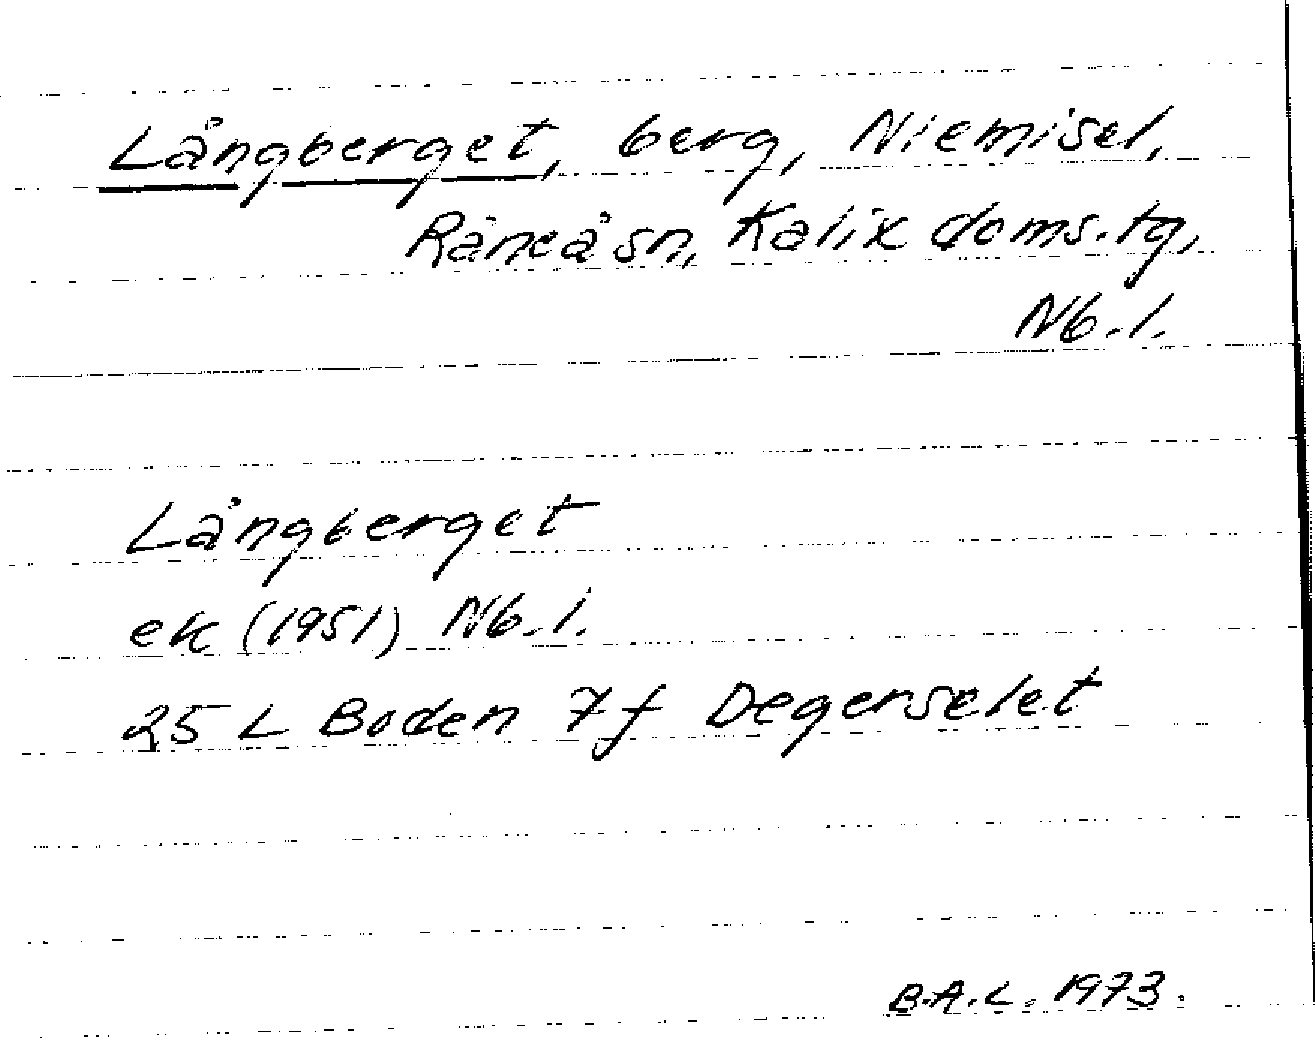 Långberget, berg, Niemisel,
Råneå sn, Kalix doms.tg,
Nb. l.
Långberget
ek (1951) Nb. l.
25 L Boden 7f Degerselet
B.A.L. 1973.